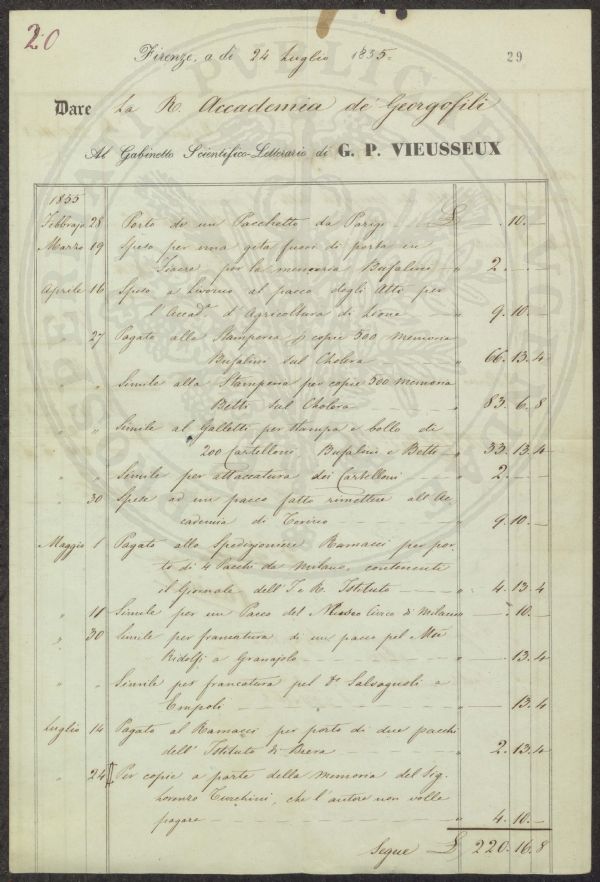 20
Firenze, a dì 24 Luglio 1855.
29
Dare La R. Accademia de' Georgofili
Al Gabinetto Scientifico-Letterario di G. P. VIEUSSEUX
1855
Febbrajo 28 Porto di un Pacchetto da Parigi £ " 10. —
Marzo 19 Spesa per una gita fuori di porta in
Fiacre per la memoria Bufalini " 2. — —
Aprile 16 Spesa a Livorno al pacco degli Atti per
l'Accad.a d'Agricoltura di Lione " 9. 10. —
" 27 Pagato alla Stamperia p copie 500 memoria
Bufalini sul Cholera " 66. 13. 4
" " Simile alla Stamperia per copie 500 memoria
Betti sul Cholera " 83. 6. 8
" " Simile al Galletti per stampa e bollo di
200 Cartelloni Bufalini e Betti " 33. 13. 4
" " Simile per attaccatura dei Cartelloni " 2. — —
" 30 Spese ad un pacco fatto rimettere all'Ac-
cademia di Torino " 9. 10. —
Maggio 1 Pagato allo Spedizioniere Ramacci per por-
to di 4 Pacchi da Milano, contenenti
il Giornale dell'I e R. Istituto " 4. 13. 4
" 11 Simile per un Pacco del Museo Civico di Milano " — 10. —
" 30 Simile per francatura di un pacco pel
Ridolfi a Granajolo " — 13. 4
" " Simile per francatura pel Dr Salvagnoli a
Empoli " — 13. 4
Luglio 14 Pagato al Ramacci per porto di due pacchi
dell'Istituto di Brera " 2. 13. 4
" 24 Per copie a parte della memoria del Sig.
Lorenzo Turchini, che l'autore non volle
pagare " 4. 10. —
Segue £ 220. 16. 8